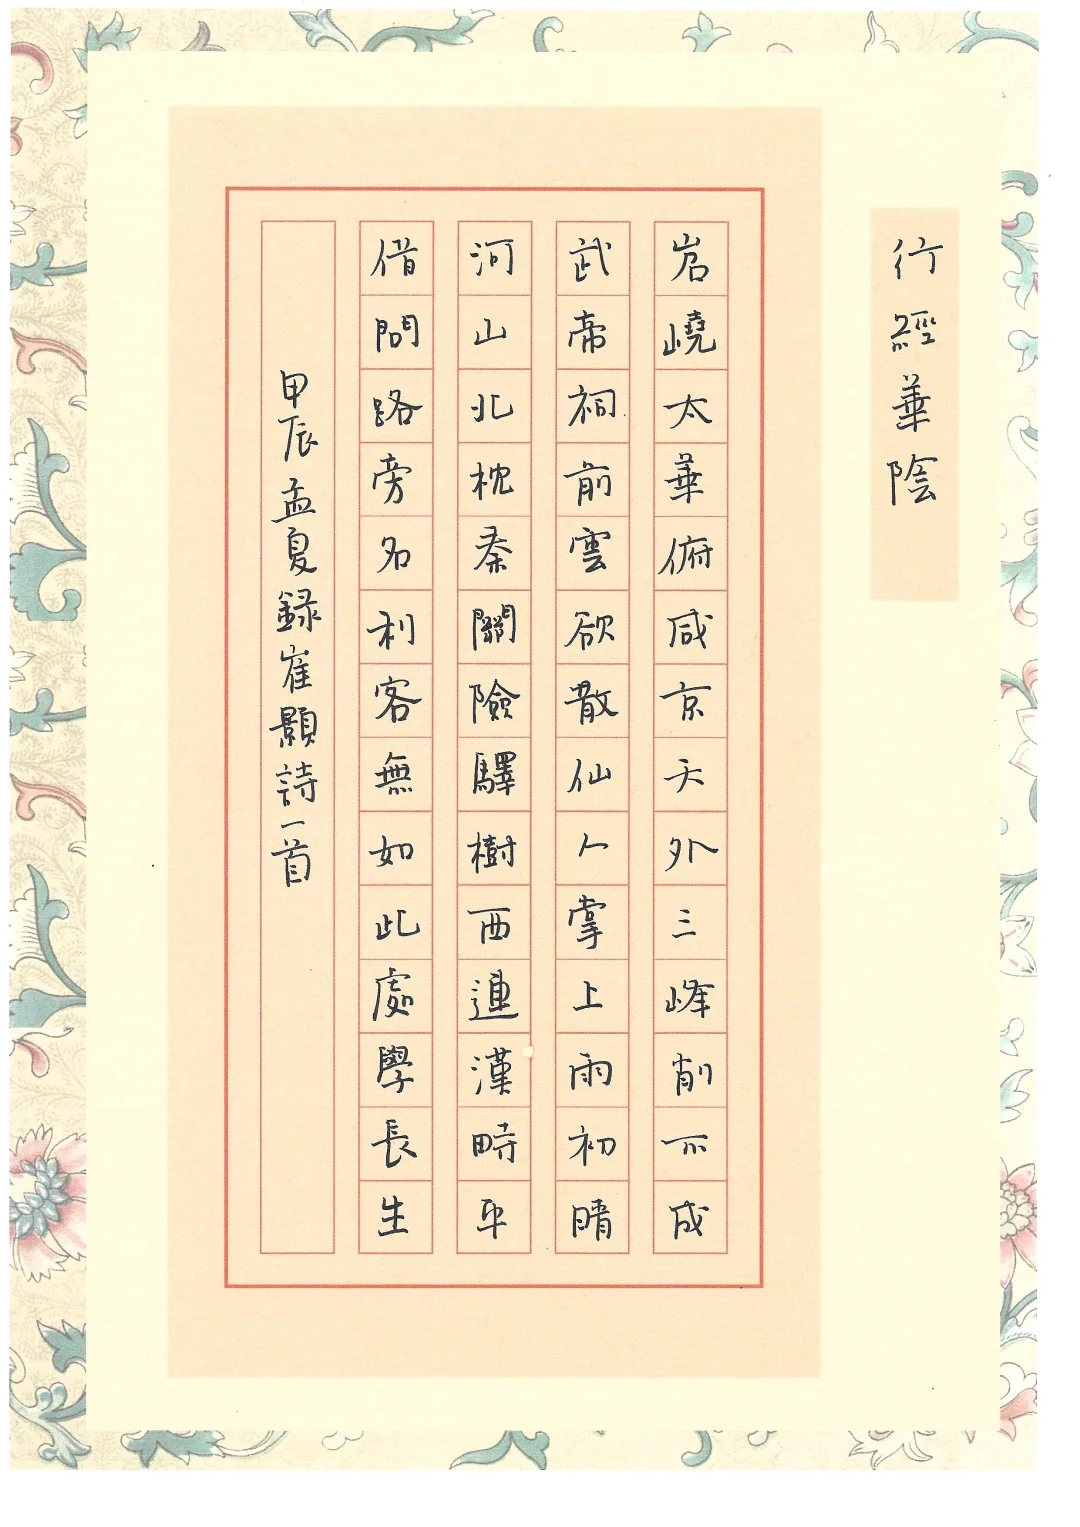 行經華陰
岧嶢太華俯咸京天外三峰削不成
武帝祠前雲欲散仙人掌上雨初晴
河山北枕秦關險驛樹西連漢畤平
借問路旁名利客無如此處學長生
甲辰孟夏録崔顥詩一首